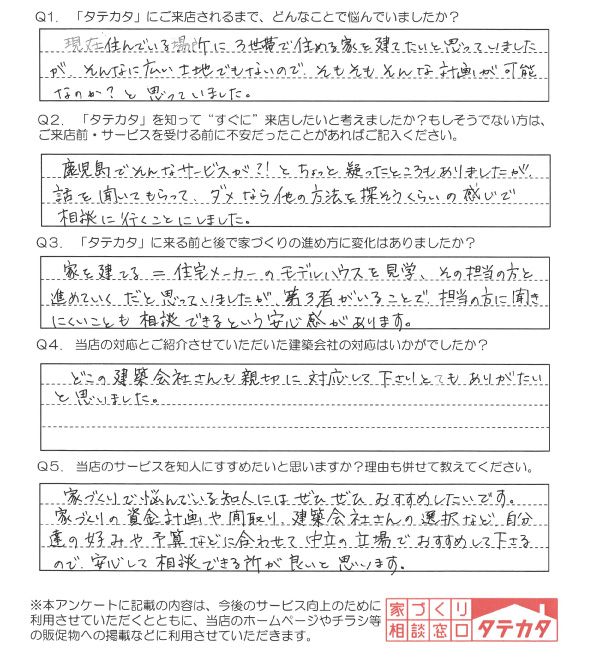 Q1. 「タテカタ」にご来店されるまで、どんなことで悩んでいましたか？
現在住んでいる場所に3世帯で住める家を建てたいと思っていました
が、そんなに広い土地でもないので、そもそもそんな計画が可能
なのか？と思っていました。
Q2. 「タテカタ」を知って“すぐに”来店したいと考えましたか？もしそうでない方は、
ご来店前・サービスを受ける前に不安だったことがあればご記入ください。
鹿児島でそんなサービスが？！とちょっと疑ったところもありましたが、
話を聞いてもらって、ダメなら他の方法を探そうくらいの感じで
相談に行くことにしました。
Q3. 「タテカタ」に来る前と後で家づくりの進め方に変化はありましたか？
家を建てる＝住宅メーカーのモデルハウスを見学、その担当の方と
進めていくだと思っていましたが、第3者がいることで、担当の方に聞き
にくいことも相談できるという安心感があります。
Q4. 当店の対応とご紹介させていただいた建築会社の対応はいかがでしたか？
どこの建築会社さんも親切に対応して下さいとてもありがたい
と思いました。
Q5. 当店のサービスを知人にすすめたいと思いますか？理由も併せて教えてください。
家づくりで悩んでいる知人にはぜひぜひおすすめしたいです。
家づくりの資金計画や間取り、建築会社さんの選択など、自分
達の好みや予算などに合わせて中立の立場でおすすめして下さる
ので、安心して相談できる所が良いと思います。
※本アンケートに記載の内容は、今後のサービス向上のために
利用させていただくとともに、当店のホームページやチラシ等
の販促物への掲載などに利用させていただきます。
家づくり
相談窓口
タテカタ